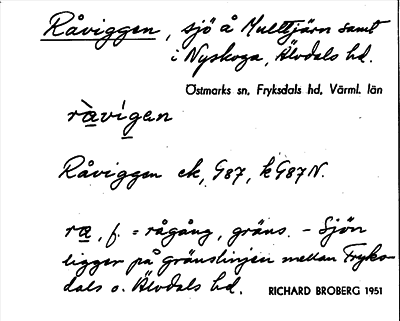 Råviggen, sjö å Multtjärn samt
i Nyskoga, Älvdals hd.
Östmarks sn, Fryksdals hd, Värml. län
ràvígen
Råviggen ek, G87, kG87N.
ra, f. = rågång, gräns. - Sjön
ligger på gränslinjen mellan Fryks-
dals o. Älvdals hd. RICHARD BROBERG 1951